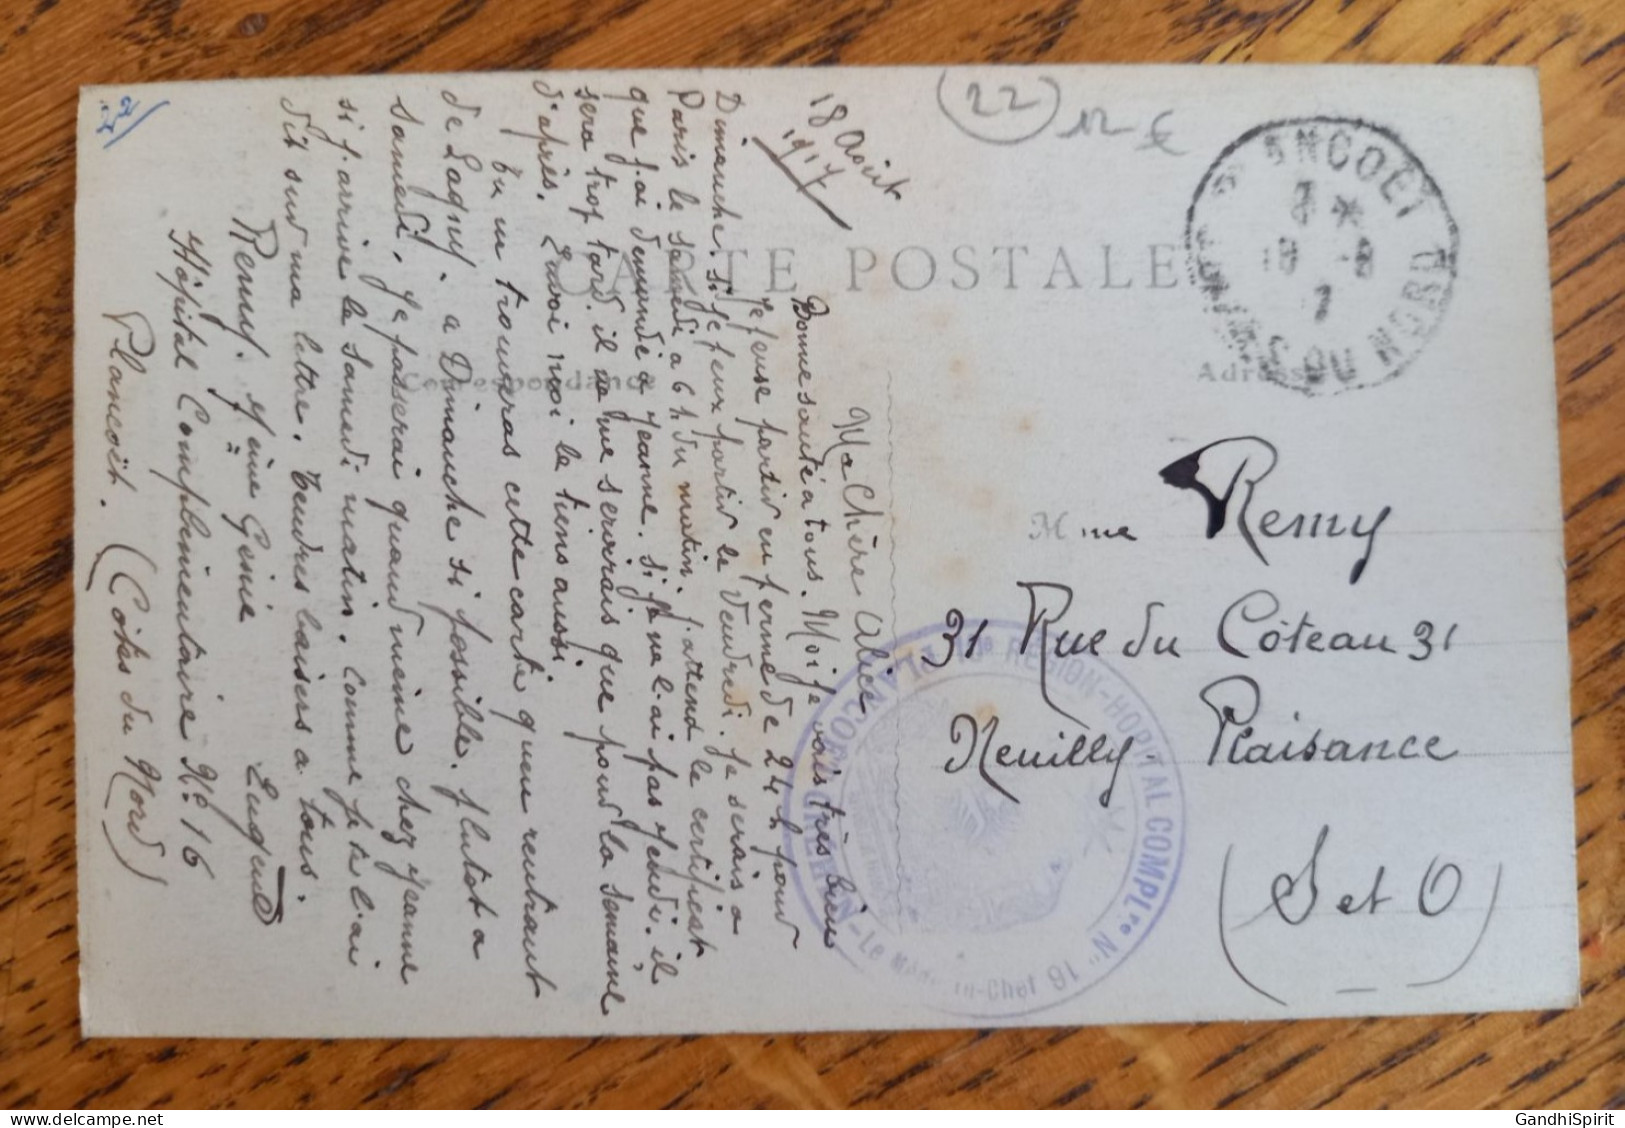 22
12 €
CARTE POSTALE
Correspondance
Adresse
PLANCOET
COTES DU NORD
18 Août
1917
Ma Chère Alice
Bonne santé a tous. Moi je vais très bien
Je pense partir en perme de 24 h pour
Dimanche. Si je peux partir le Vendredi. Je serais a
Paris le samedi a 6 h du matin. j'attend le certificat
que j'ai demandé a Jeanne. Si je ne l'ai pas Jeudi. il
sera trop tard. il ne me servirais que pour la semaine
d'après. Envoi moi le tiens aussi
tu me trouveras cette carte qu'en rentrant
de Lagny. a Dimanche si possible. plutot a
samedi. Je passerai quand meme chez Jeanne
si j'arrive le samedi matin. Comme je te l'ai
dit sur ma lettre. Tendres baisers a tous.
Eugène
Remy. 4ème Génie
Hôpital Complémentaire N° 16
Plancoët. (Côtes du Nord)
Mme Remy
31 Rue du Côteau 31
Neuilly Plaisance
(S et O)
10e REGION - HOPITAL COMPLre N° 16
PLANCOET
CREHEN - Le Médecin-Chef
GandhiSpirit